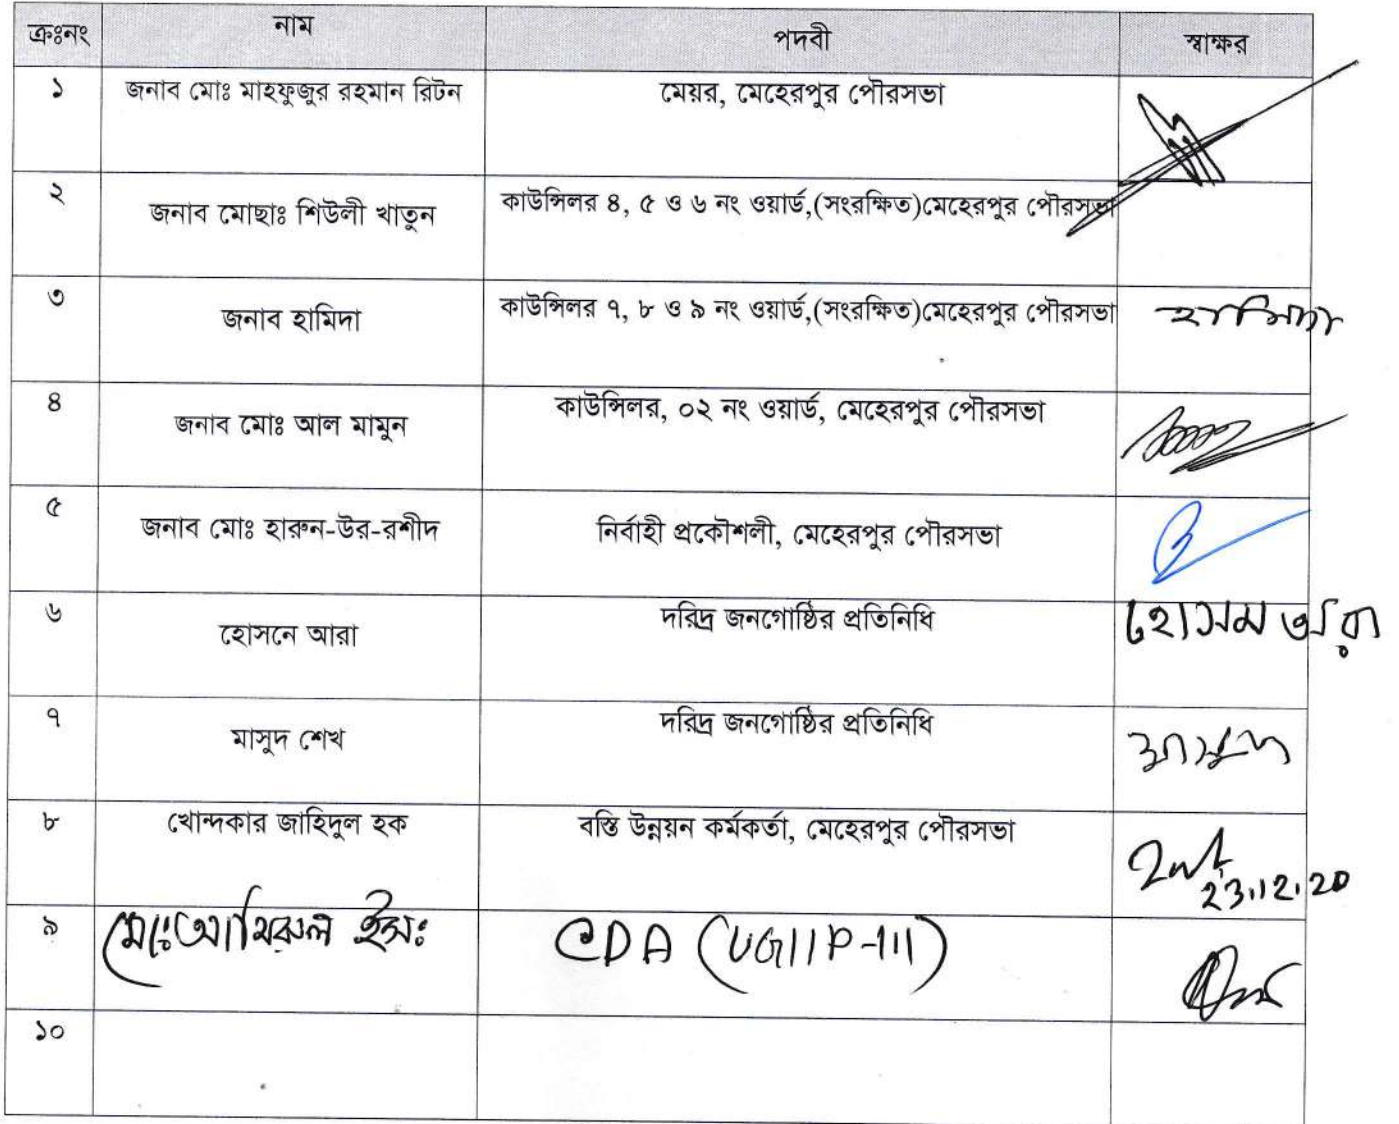 ক্রঃনং নাম পদবী স্বাক্ষর
১ জনাব মোঃ মাহফুজুর রহমান রিটন মেয়র, মেহেরপুর পৌরসভা
২ জনাব মোছাঃ শিউলী খাতুন কাউন্সিলর ৪, ৫ ও ৬ নং ওয়ার্ড,(সংরক্ষিত)মেহেরপুর পৌরসভা
৩ জনাব হামিদা কাউন্সিলর ৭, ৮ ও ৯ নং ওয়ার্ড,(সংরক্ষিত)মেহেরপুর পৌরসভা হামিদা
৪ জনাব মোঃ আল মামুন কাউন্সিলর, ০২ নং ওয়ার্ড, মেহেরপুর পৌরসভা
৫ জনাব মোঃ হারুন-উর-রশীদ নির্বাহী প্রকৌশলী, মেহেরপুর পৌরসভা
৬ হোসনে আরা দরিদ্র জনগোষ্ঠির প্রতিনিধি হোসনে আরা
৭ মাসুদ শেখ দরিদ্র জনগোষ্ঠির প্রতিনিধি মাসুদ
৮ খোন্দকার জাহিদুল হক বস্তি উন্নয়ন কর্মকর্তা, মেহেরপুর পৌরসভা 23.12.20
৯ মোঃ আমিরুল ইসঃ CDA (UGIIP-III)
১০